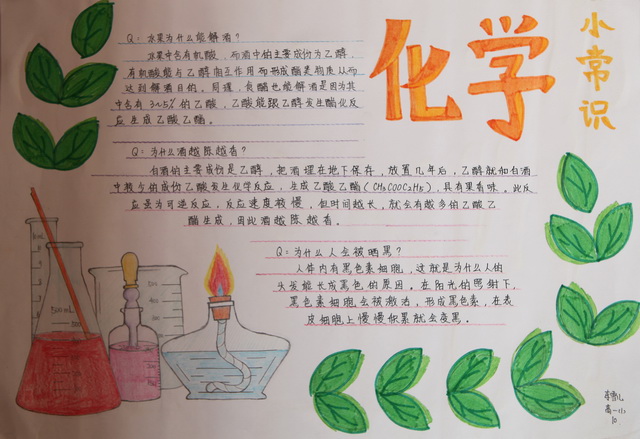 化学
小常识
Q：水果为什么能解酒？
水果中含有机酸，而酒中的主要成份为乙醇，
有机酸能与乙醇相互作用而形成酯类物质从而
达到解酒目的。同理，食醋也能解酒是因为其
中含有3~5%的乙酸，乙酸能跟乙醇发生酯化反
应生成乙酸乙酯。
Q：为什么酒越陈越香？
白酒的主要成份是乙醇，把酒埋在地下保存，放置几年后，乙醇就和白酒
中较少的成份乙酸发生化学反应，生成乙酸乙酯（CH3COOC2H5），具有果香味。此反
应虽为可逆反应，反应速度较慢，但时间越长，就会有越多的乙酸乙
酯生成，因此酒越陈越香。
Q：为什么人会被晒黑？
人体内有黑色素细胞，这就是为什么人的
头发能长成黑色的原因。在阳光的照射下，
黑色素细胞会被激活，形成黑色素，在表
皮细胞上慢慢积累就会变黑。
500mL
高一小
10